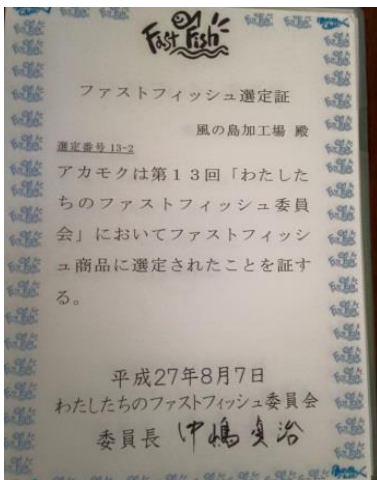 Fast Fish
ファストフィッシュ選定証
風の島加工場 殿
選定番号 13-2
アカモクは第13回「わたした
ちのファストフィッシュ委員
会」においてファストフィッシ
ュ商品に選定されたことを証す
る。
平成27年8月7日
わたしたちのファストフィッシュ委員会
委員長 中嶋 貞治